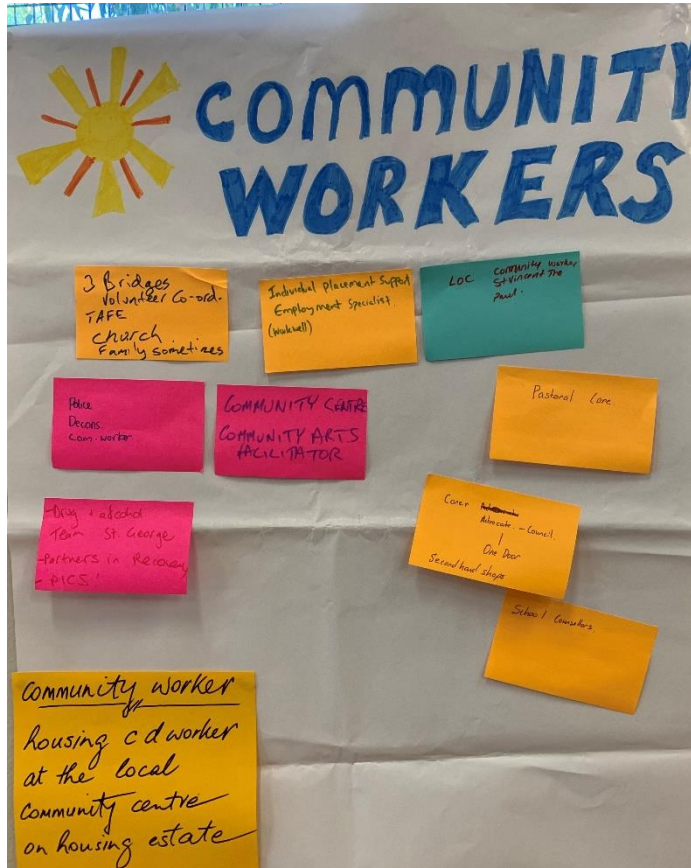 COMMUNITY
WORKERS
3 Bridges
Volunteer Co-ord.
TAFE
Church
Family sometimes
Individual Placement Support
Employment Specialist
(Workwell)
LOC Community Worker
St Vincent The
Paul.
Police
Com. worker
COMMUNITY CENTRE
COMMUNITY ARTS
FACILITATOR
Pastoral Care
-Drug + alcohol
Team St. George
-Partners in Recovery
- PICS!
Carer
Advocate. - Council.
One Door
Second hand shops
School Counselors.
Community worker
housing c d worker
at the local
community centre
on housing estate